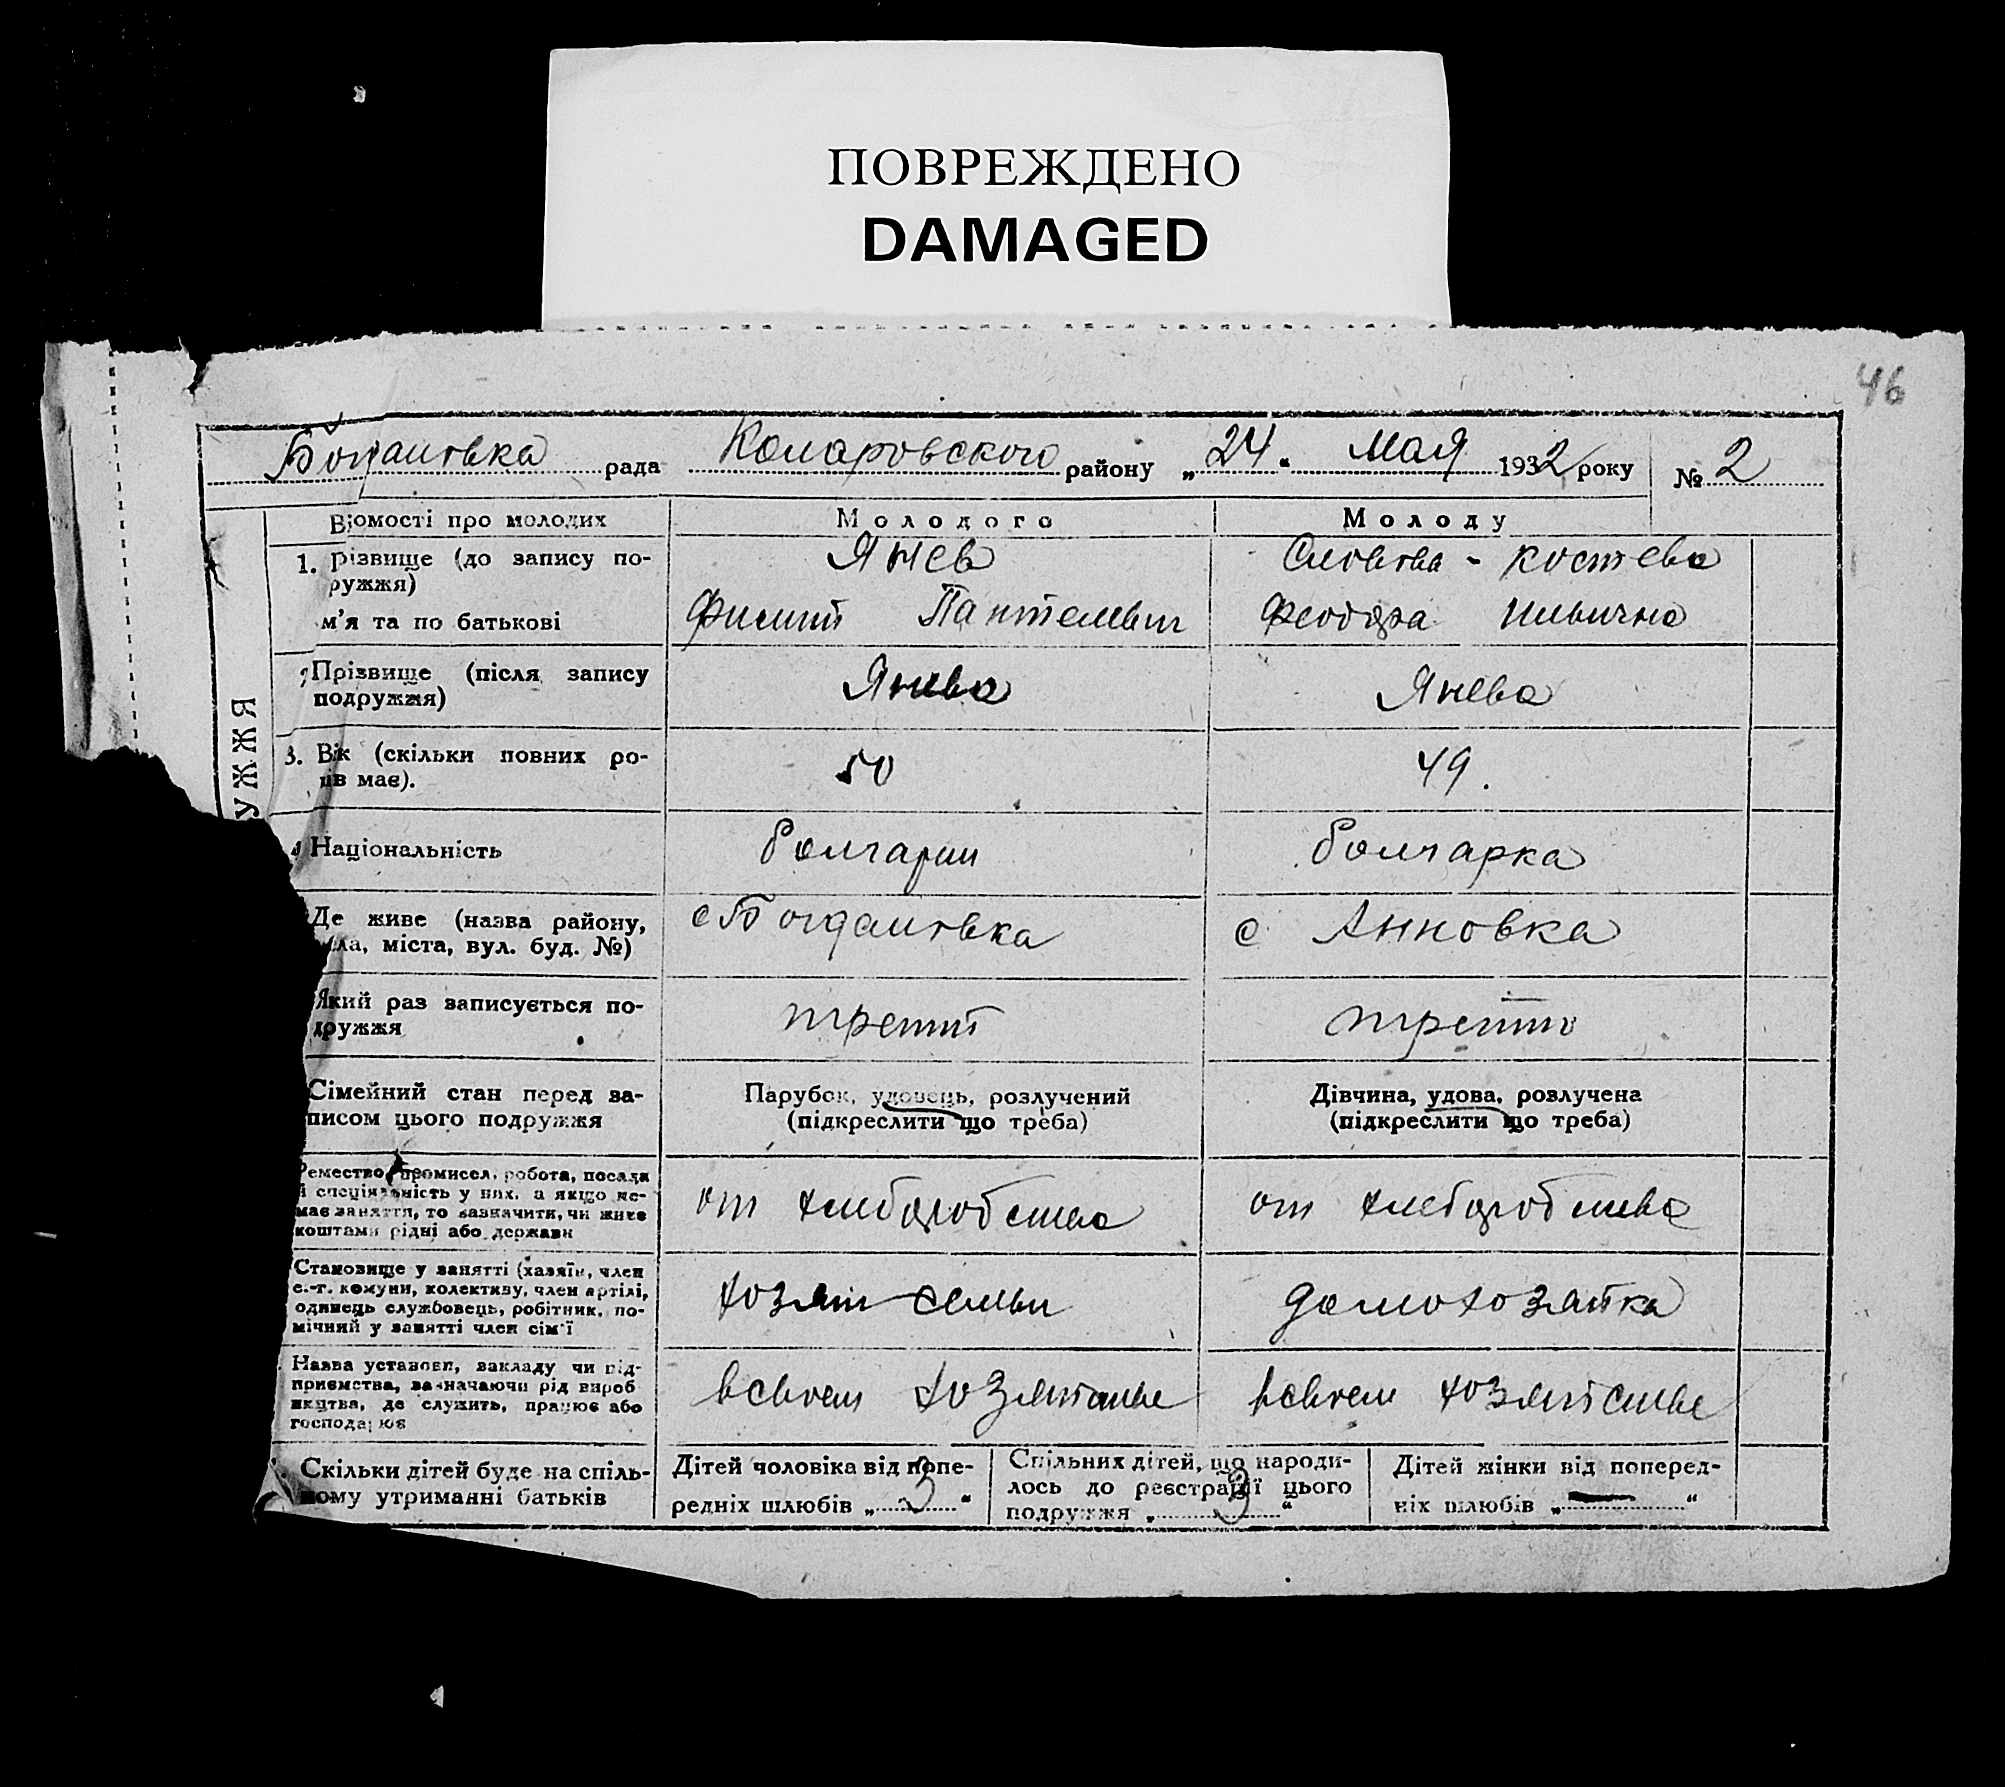 ПОВРЕЖДЕНО
DAMAGED
46
Богдановка рада Коларовского району „24“ Мая 1932 року № 2
УЖЖЯ
Відомості про молодих Молодого Молоду
1. Прізвище (до запису по-
ружжя) Янев Костева
м'я та по батькові Филип Пантелеевич Феодора Ильична
Прізвище (після запису
подружжя) Янева Янева
3. Вік (скільки повних ро-
ків має). 50 49.
Національність болгарин болгарка
Де живе (назва району,
села, міста, вул. буд. №) с Богдановка с Анновка
Який раз записується по-
дружжя третий
Сімейний стан перед за-
писом цього подружжя
Парубок, удовець, розлучений
(підкреслити що треба)
Дівчина, удова, розлучена
(підкреслити що треба)
Ремество, промисел, робота, посада
й спеціяльність у них, а якщо не-
має заняття, то зазначити, чи живе
коштами рідні або держави
от хлеборобства от хлеборобства
Становище у занятті (хазяїн, член
с.-г. комуни, колективу, член артілі,
одинець службовець, робітник, по-
мічний у занятті член сім'ї
хозяин семьи домохозяйка
Назва установи, закладу чи під-
приємства, зазначаючи рід вироб
ництва, де служить, працює або
господарює
в своем хозяйстве в своем хозяйстве
Скільки дітей буде на спіль-
ному утриманні батьків
Дітей чоловіка від попе-
редніх шлюбів „3“
Спільних дітей, що народи-
лось до реєстрації цього
подружжя „3“
Дітей жінки від поперед-
ніх шлюбів „—“